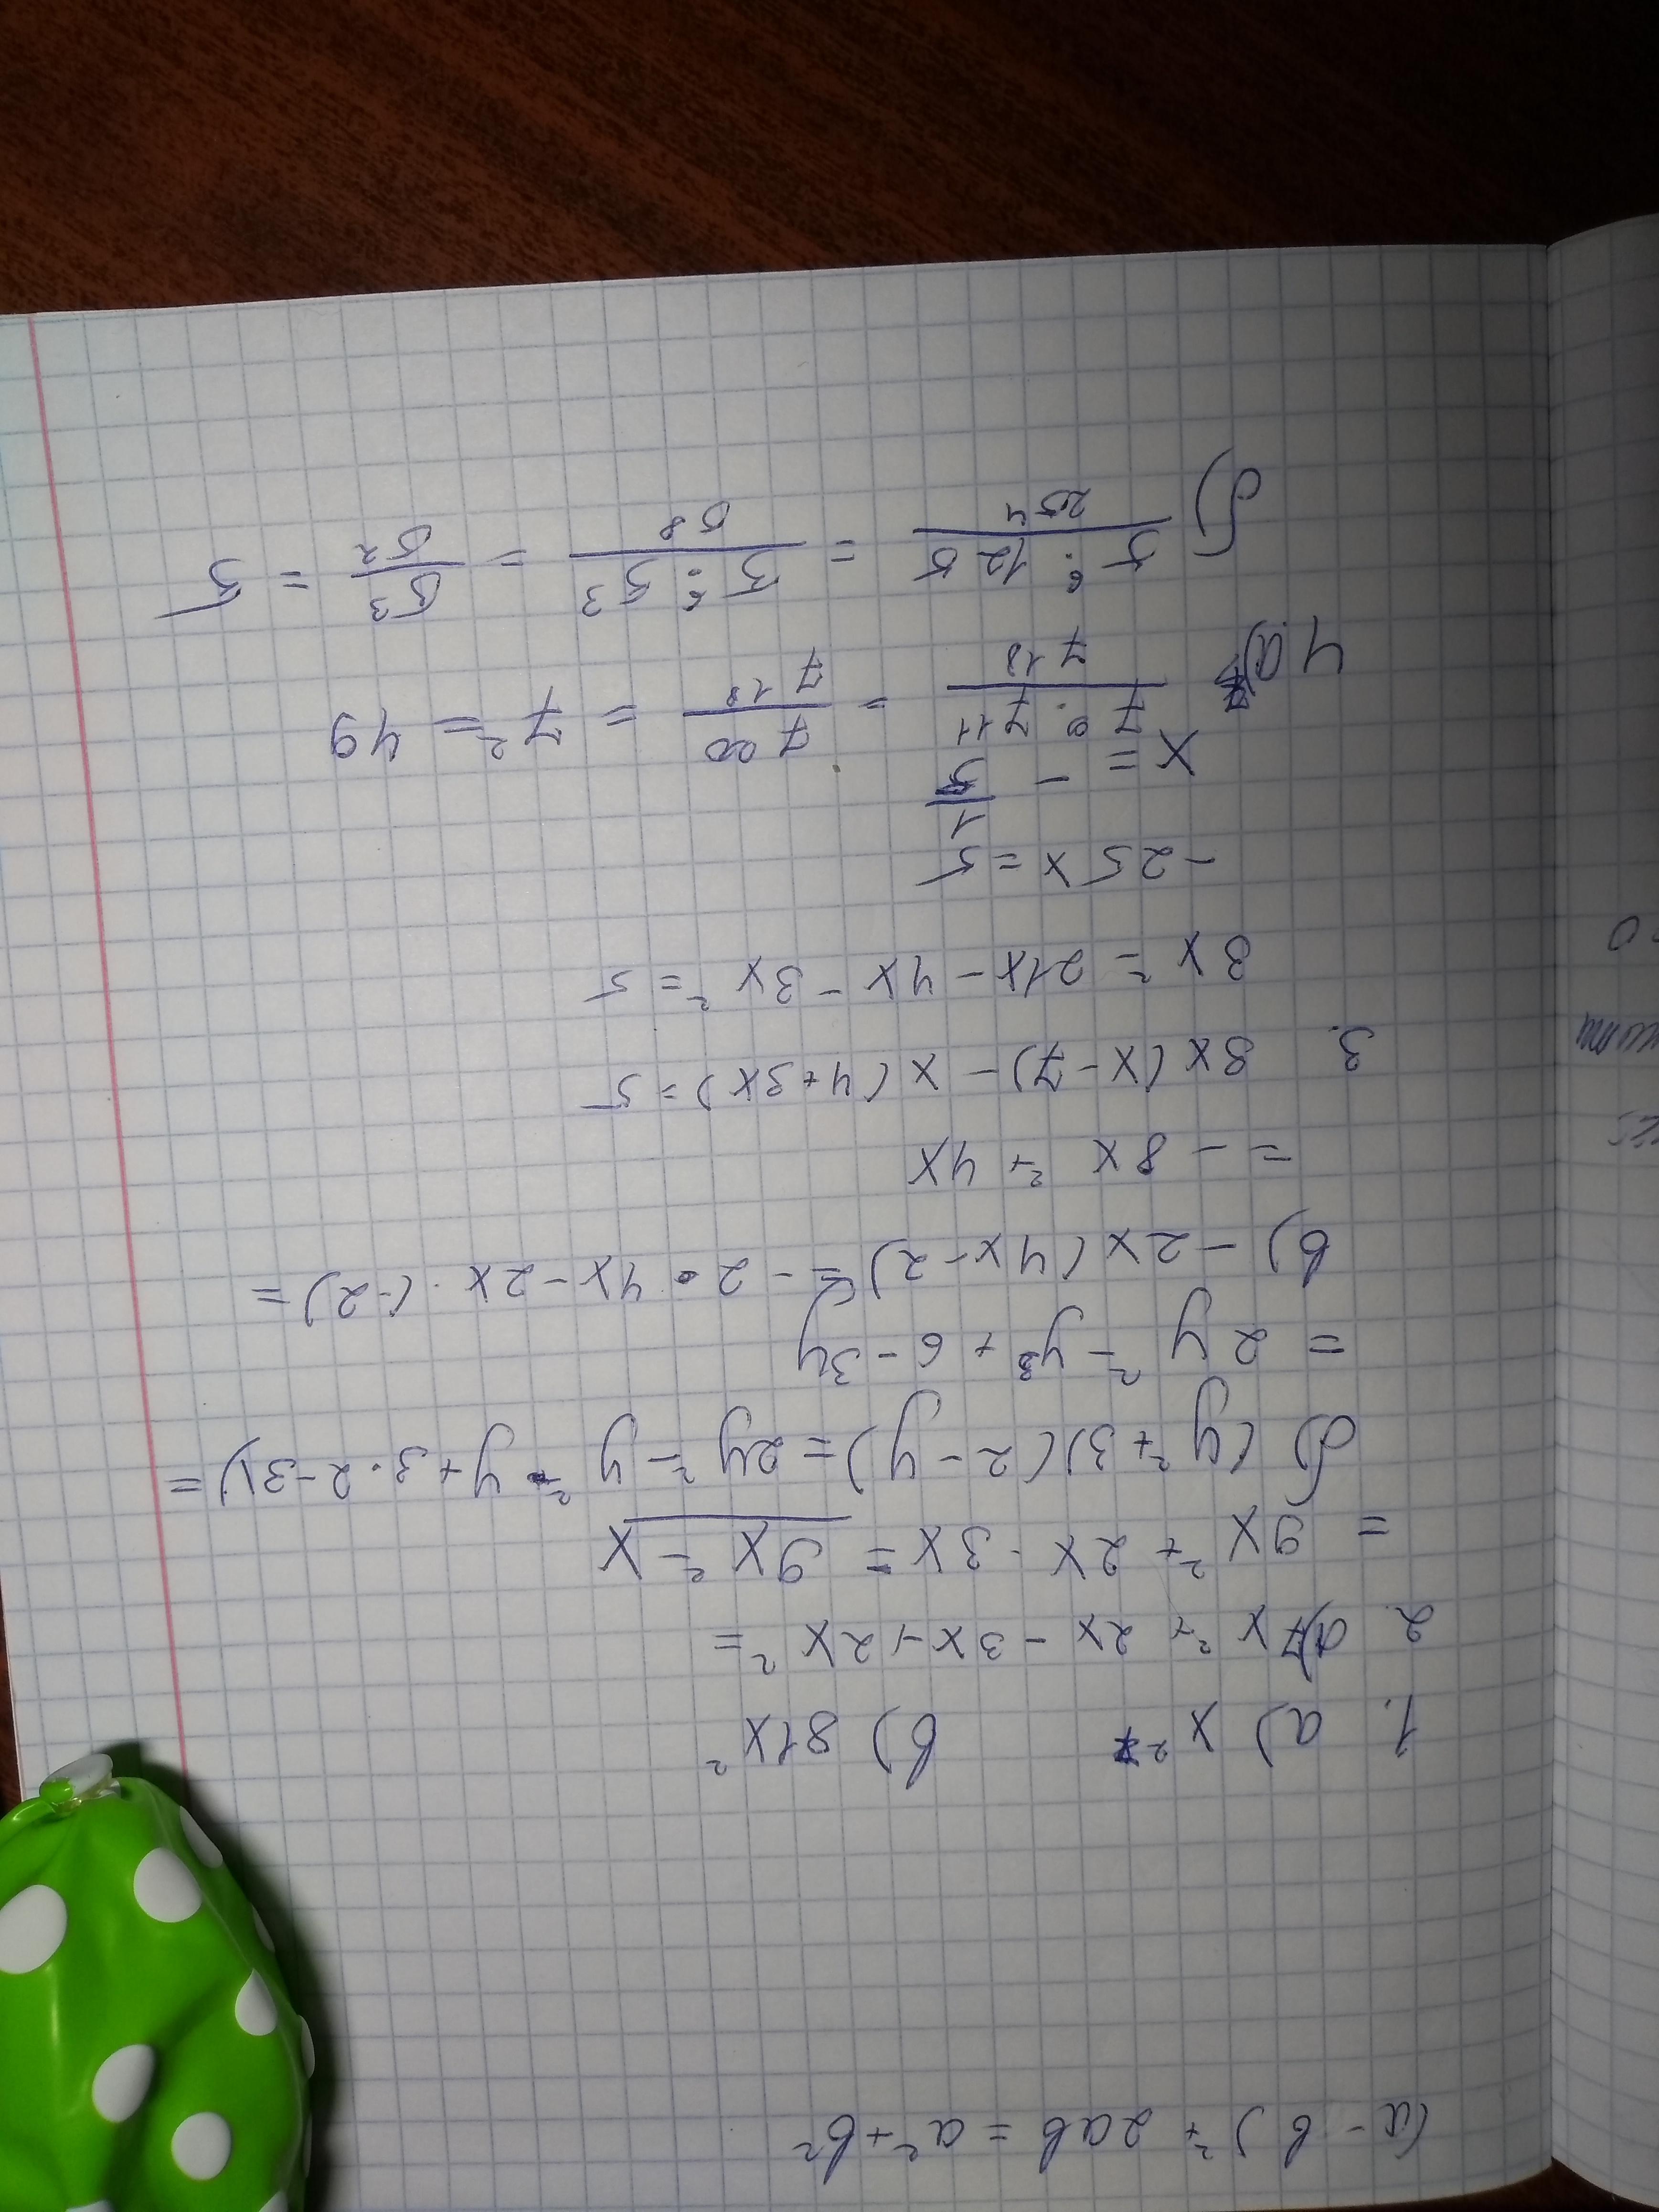 (a-b)²+2ab=a²+b²
1. а) x²⁷ в) 81x²
2. а) 7x²+2x-3x+2x²=
= 9x²+2x-3x=9x²-x
б) (y²+3)(2-y)=2y²-y²·y+3·2-3y)=
= 2y²-y³+6-3y
в) -2x(4x-2)=-2·4x-2x·(-2)=
= -8x²+4x
3. 3x(x-7)-x(4+3x)=5
3x²-21x-4x-3x²=5
-25x=5
x=-1/5
4 а) 7⁹·7¹¹/7¹⁸=7²⁰/7¹⁸=7²=49
б) 5⁶·125/25⁴=5⁶·5³/5⁸=5³/5²=5